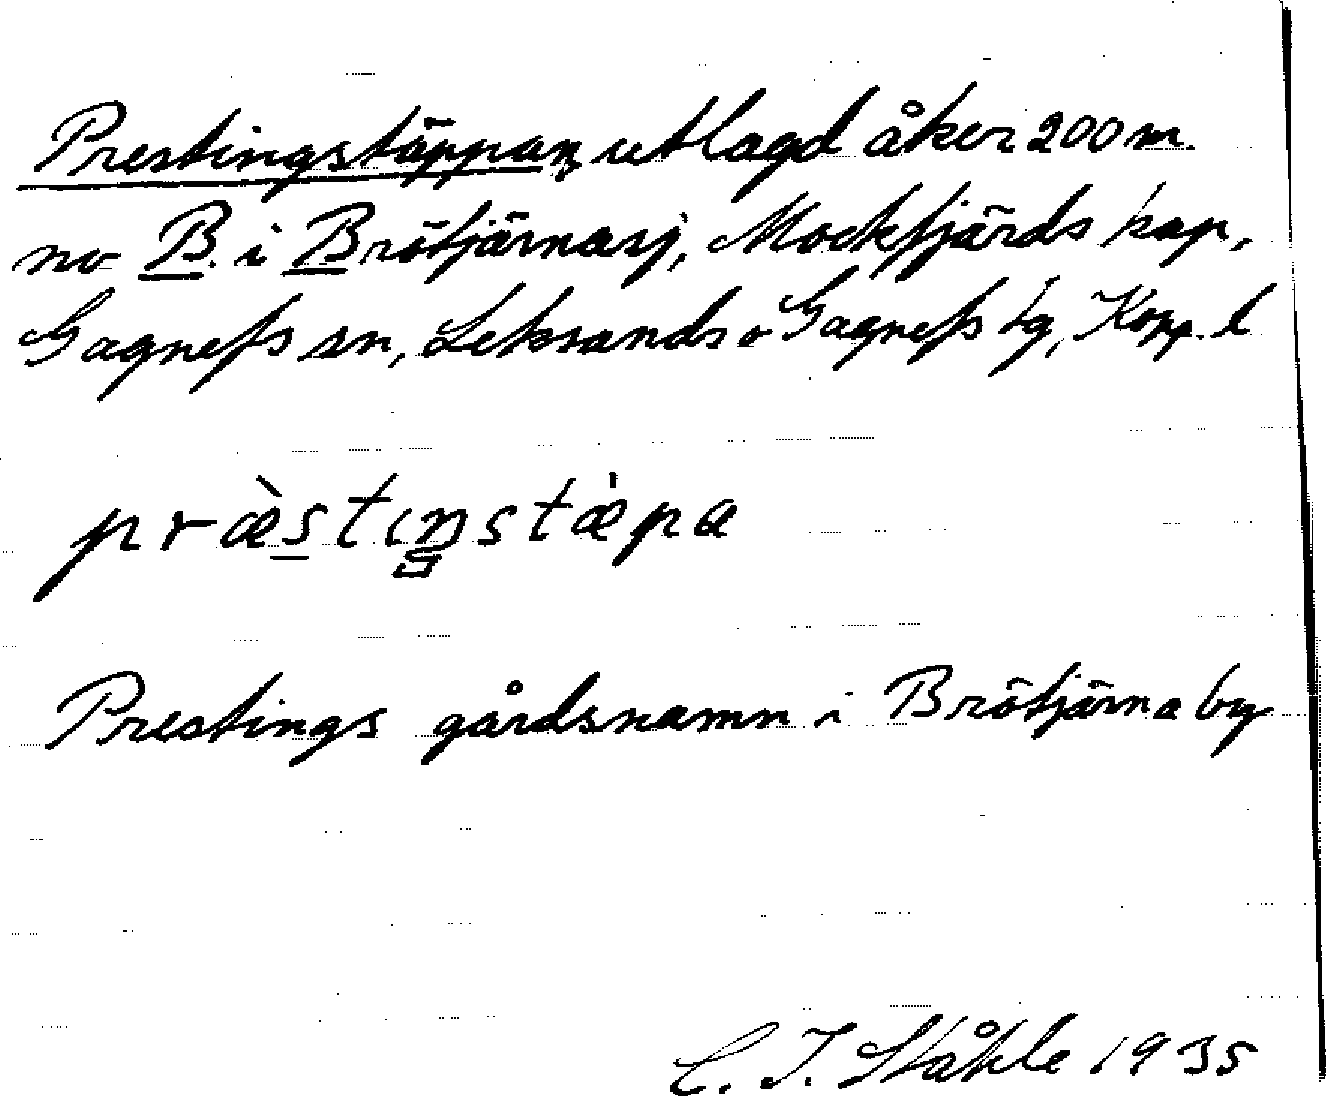 Prestingstäppan, utlagd åker 200 m.
no B. i Brötjärnasj, Mockfjärds kap,
Gagnefs sn, Leksands o Gagnefs tg, Kopp. l
præ̀stiŋstæ̀pa
Prestings gårdsnamn i Brötjärna by
C. I. Ståhle 1935